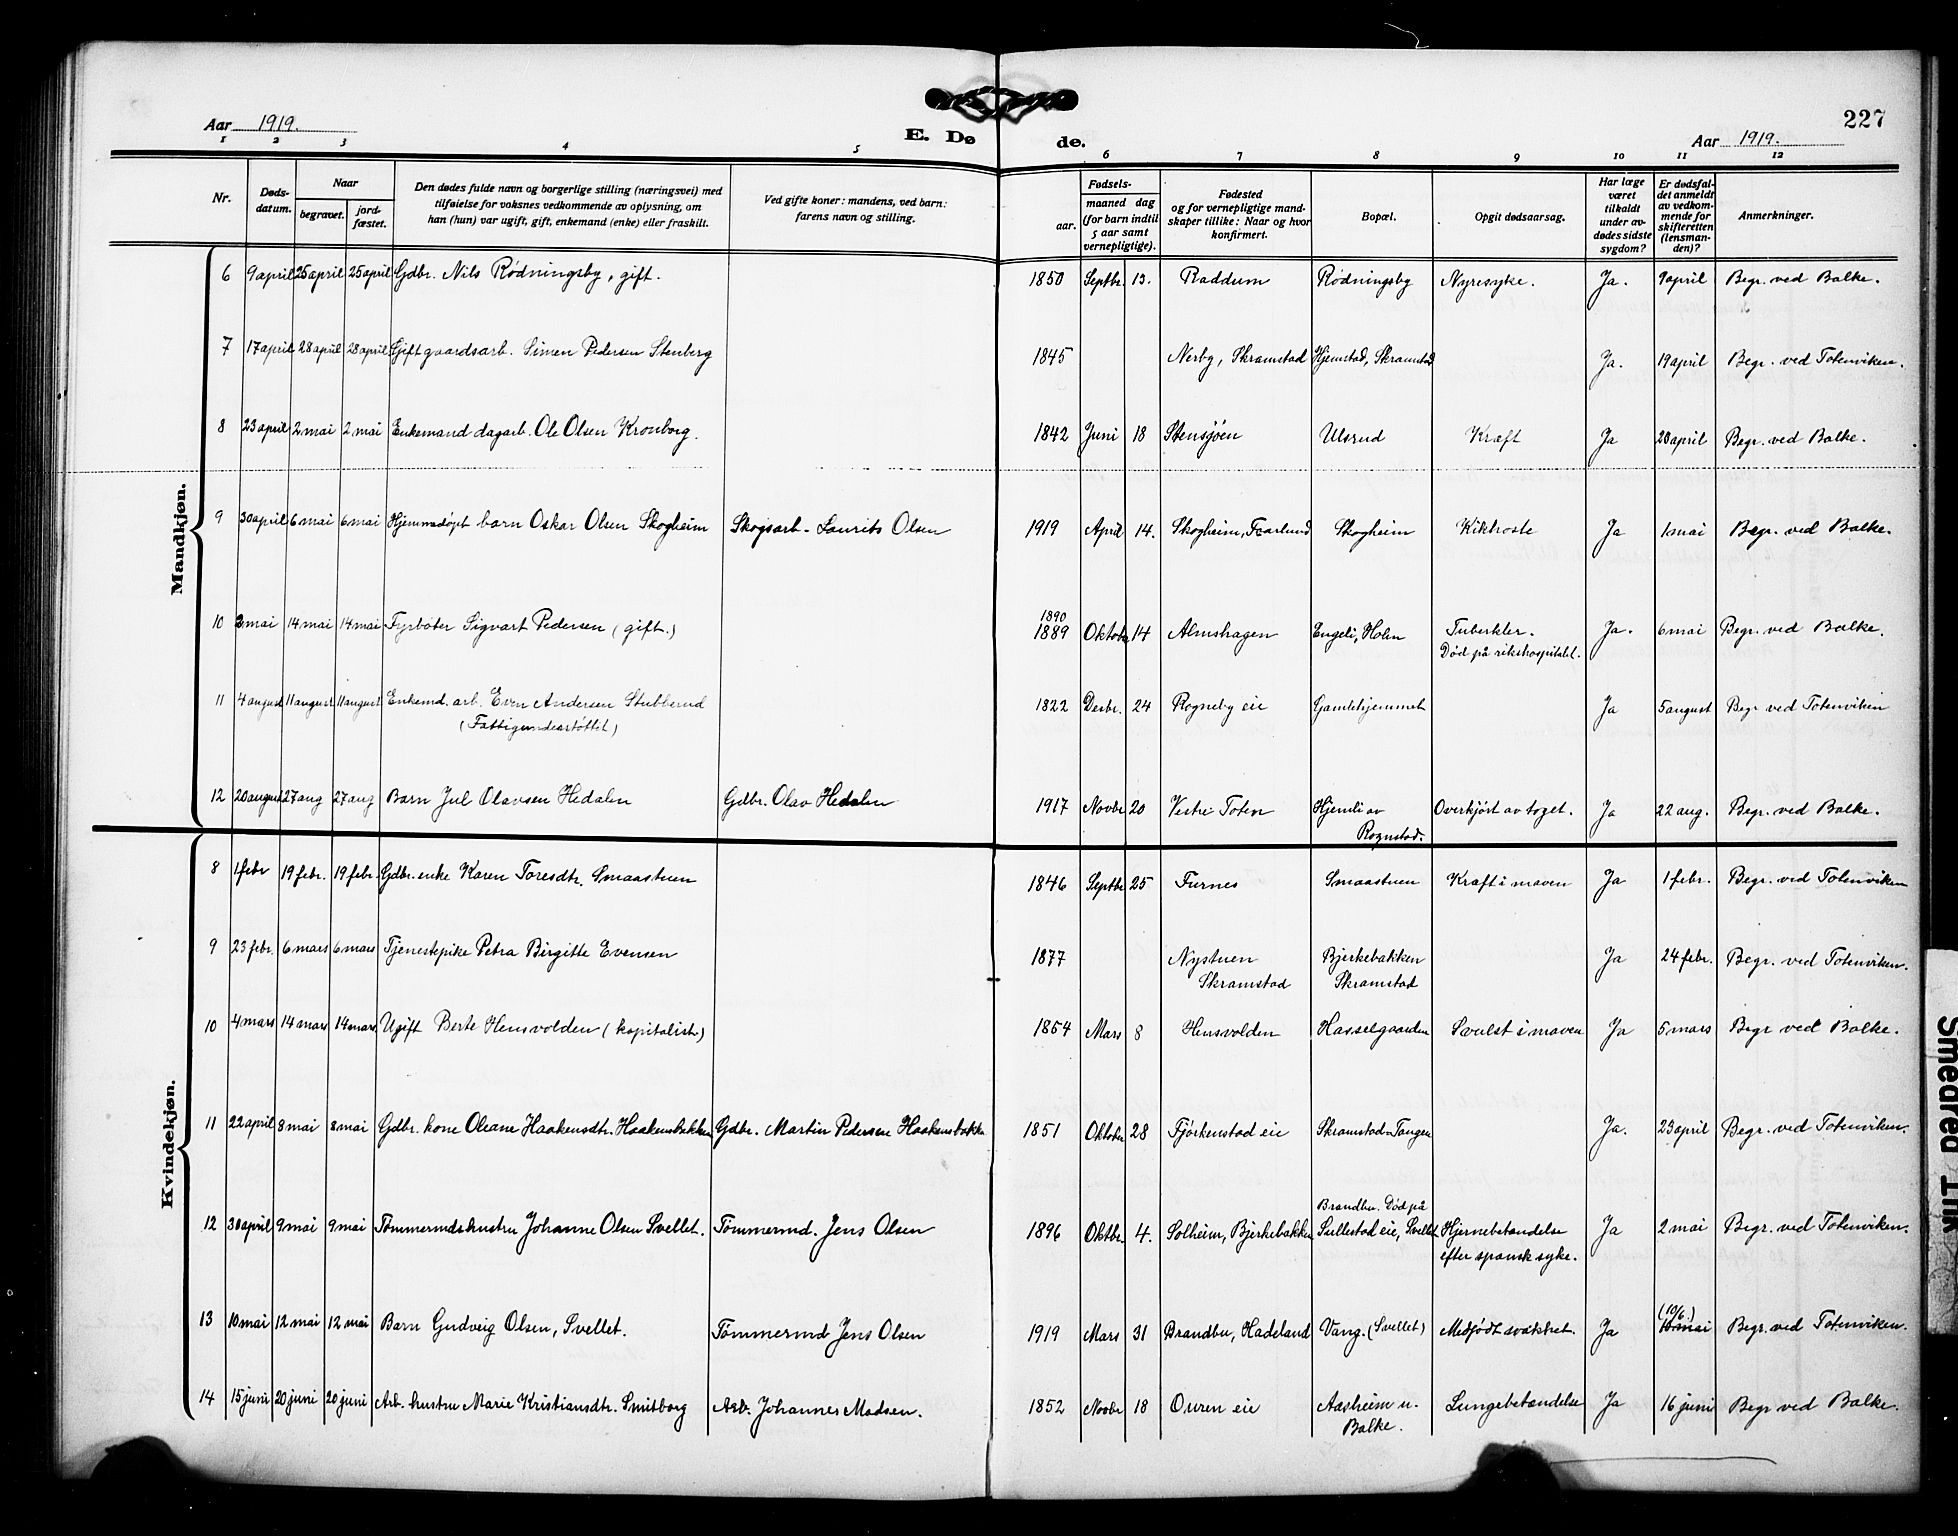 227
Aar 1919.
E. Dø de.
Aar 1919.
1 2 3 4 5 6 7 8 9 10 11 12
Nr.
Døds-
datum.
Naar
begravet.
jord-
fæstet.
Den dødes fulde navn og borgerlige stilling (næringsvei) med
tilføielse for voksnes vedkommende av oplysning, om
han (hun) var ugift, gift, enkemand (enke) eller fraskilt.
Ved gifte koner: mandens, ved barn:
farens navn og stilling.
Fødsels-
aar.
maaned dag
(for barn indtil
5 aar samt
vernepligtige).
Fødested
og for vernepligtige mand-
skaper tillike: Naar og hvor
konfirmert.
Bopæl.
Opgit dødsaarsag.
Har læge
været
tilkaldt
under av-
dødes sidste
sygdom?
Er dødsfal-
det anmeldt
av vedkom-
mende for
skifteretten
(lensman-
den)?
Anmerkninger.
Mandkjøn.
6 9 april 25 april 25 april Gdbr. Nils Rødningsby, gift. 1850 Septbr. 13. Raddum Rødningsby Nyresyke. Ja. 9 april Begr. ved Balke.
7 17 april 28 april 28 april Gift gaardsarb. Simen Pedersen Stenberg 1845 Nerby, Skramstad Hjemstad, Skramstad Ja. 19 april Begr. ved Totenviken.
8 23 april 2 mai 2 mai Enkemand dagarb. Ole Olsen Kronborg. 1842 Juni 18 Stensjøen Ulsrud Kræft Ja 28 april Begr. ved Balke.
9 30 april 6 mai 6 mai Hjemmedøpt barn Oskar Olsen Skogheim Skogsarb. Laurits Olsen 1919 April 14. Skogheim, Faarlund Skogheim Kikhoste Ja 1 mai Begr. ved Balke.
1890
10 mai 14 mai 14 mai Fyrbøter Sigvart Pedersen (gift.) 1889 Oktobr 14 Almshagen Engeli, Holm Tuberkler. Ja. 6 mai Begr. ved Balke.
Død på rikshospitalet.
11 4 august 11 august 11 august Enkemd. arb. Even Andersen Stubberud 1822 Desbr. 24 Rogneby eie Gamlehjemmet Ja 5 august Begr ved Totenviken
(Fattigunderstøttet)
12 20 august 27 aug 27 aug Barn Jul Olavsen Hedalen Gdbr. Olav Hedalen 1917 Novbr 20 Vestre Toten Hjemli av Overkjørt av toget. Ja 22 aug. Begr. ved Balke.
Rognstad.
Kvindekjøn.
8 1 febr 19 febr. 19 febr. Gdbr. enke Karen Toresdtr. Smaastuen 1846 Septbr 25 Furnes Smaastuen Kræft i maven Ja 1 febr. Begr. ved Totenviken
9 23 febr. 6 mars 6 mars Tjenestepike Petra Birgitte Evensen 1877 Nystuen Bjerkebakken Ja 24 febr. Begr. ved Totenviken.
Skramstad Skramstad
10 4 mars 14 mars 14 mars Ugift Berte Hensvolden (kapitalist) 1854 Mars 8 Hensvolden Hasselgaarden Svulst i maven Ja 5 mars Begr ved Balke.
11 22 april 8 mai 8 mai Gdbr. kone Oleane Haakensdtr. Haakensbakken Gdbr. Martin Pedersen Haakensbakke 1851 Oktobr 28 Fjørkenstad eie Skramstad-Tangen Ja. 23 april Begr. ved Totenviken.
Brandbu. Død på
12 30 april 9 mai 9 mai Tømmermdshustru Johanne Olsen Svellet. Tømmermd. Jens Olsen 1896 Oktbr. 4. Solheim, Bjerkebakken Sullestad eie, Svellet Hjernebetændelse Ja 2 mai Begr. ved Totenviken.
efter spansk syke.
(10/6)
13 10 mai 12 mai 12 mai Barn Gudveig Olsen, Svellet. Tømmermd Jens Olsen 1919 Mars 31 Brandbu, Hadeland Vang. (Svellet) Medfødt svakhet. Ja 10 mai Begr. ved Totenviken.
14 15 juni 20 juni 20 juni Arb. hustru Marie Kristiansdtr. Smitborg Arb. Johannes Madsen. 1852 Novbr 18 Ouren eie Aasheim u. Lungebetændelse Ja 16 juni Begr ved Balke.
Balke.
Smedrød Tlk